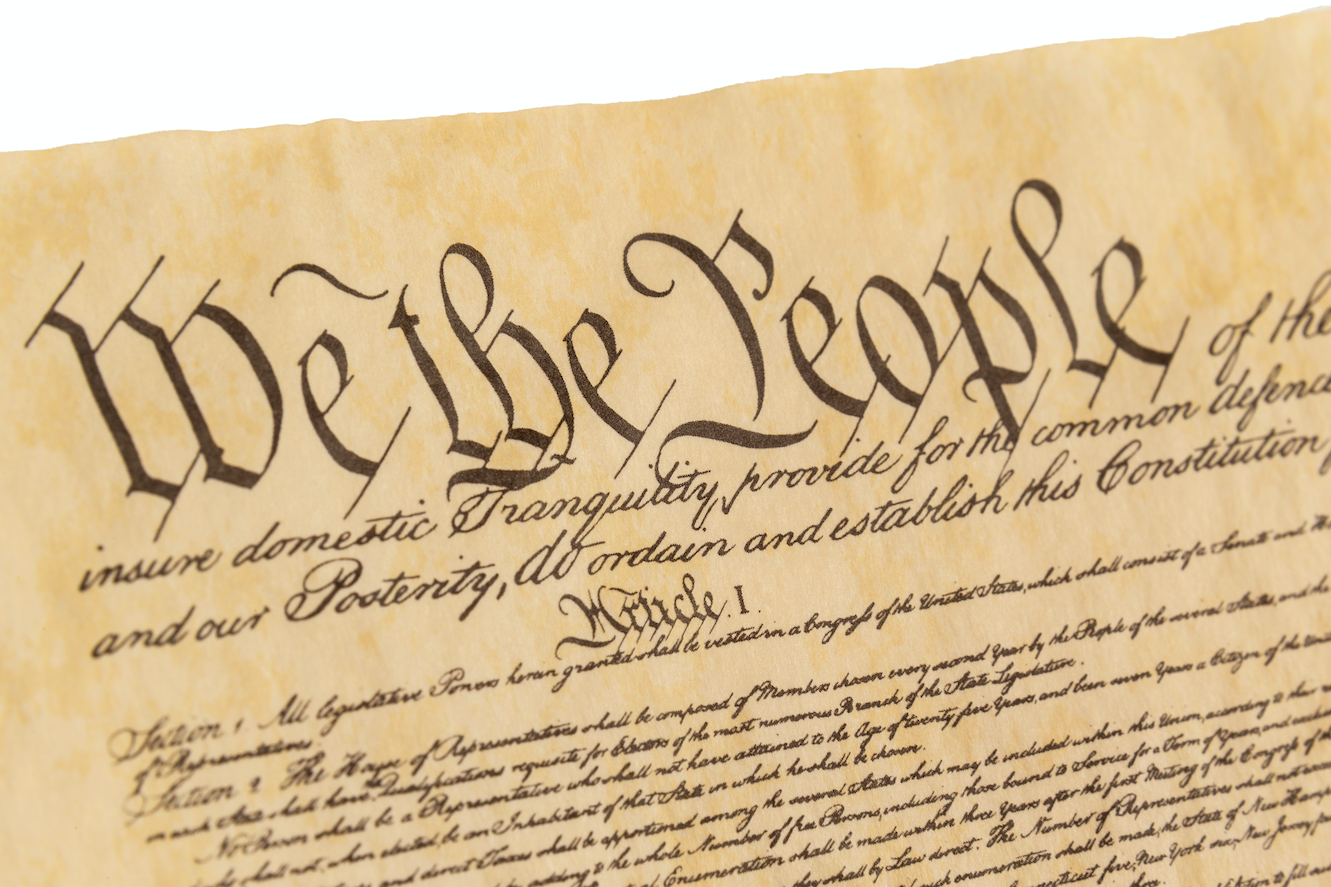 We the People of the
insure domestic Tranquility, provide for the common defence
and our Posterity, do ordain and establish this Constitution
Article. I.
Section 1 All legislative Powers herein granted shall be vested in a Congress of the United States, which shall consist of a Senate and
of Representatives.
Section 2 The House of Representatives shall be composed of Members chosen every second Year by the People of the several States, and the
in each State shall have Qualifications requisite for Electors of the most numerous Branch of the State Legislature.
No Person shall be a Representative who shall not have attained to the Age of twenty five Years, and been seven Years a Citizen of the
shall not, when elected, be an Inhabitant of that State in which he shall be chosen.
and direct Taxes shall be apportioned among the several States which may be included within this Union, according to their
by adding to the whole Number of free Persons, including those bound to Service for a Term of Years, and
Enumeration shall be made within three Years after the first Meeting of the Congress of the
they shall by Law direct. The Number of Representatives shall not
such enumeration shall be made, the State of New
five, New York six, New Jersey